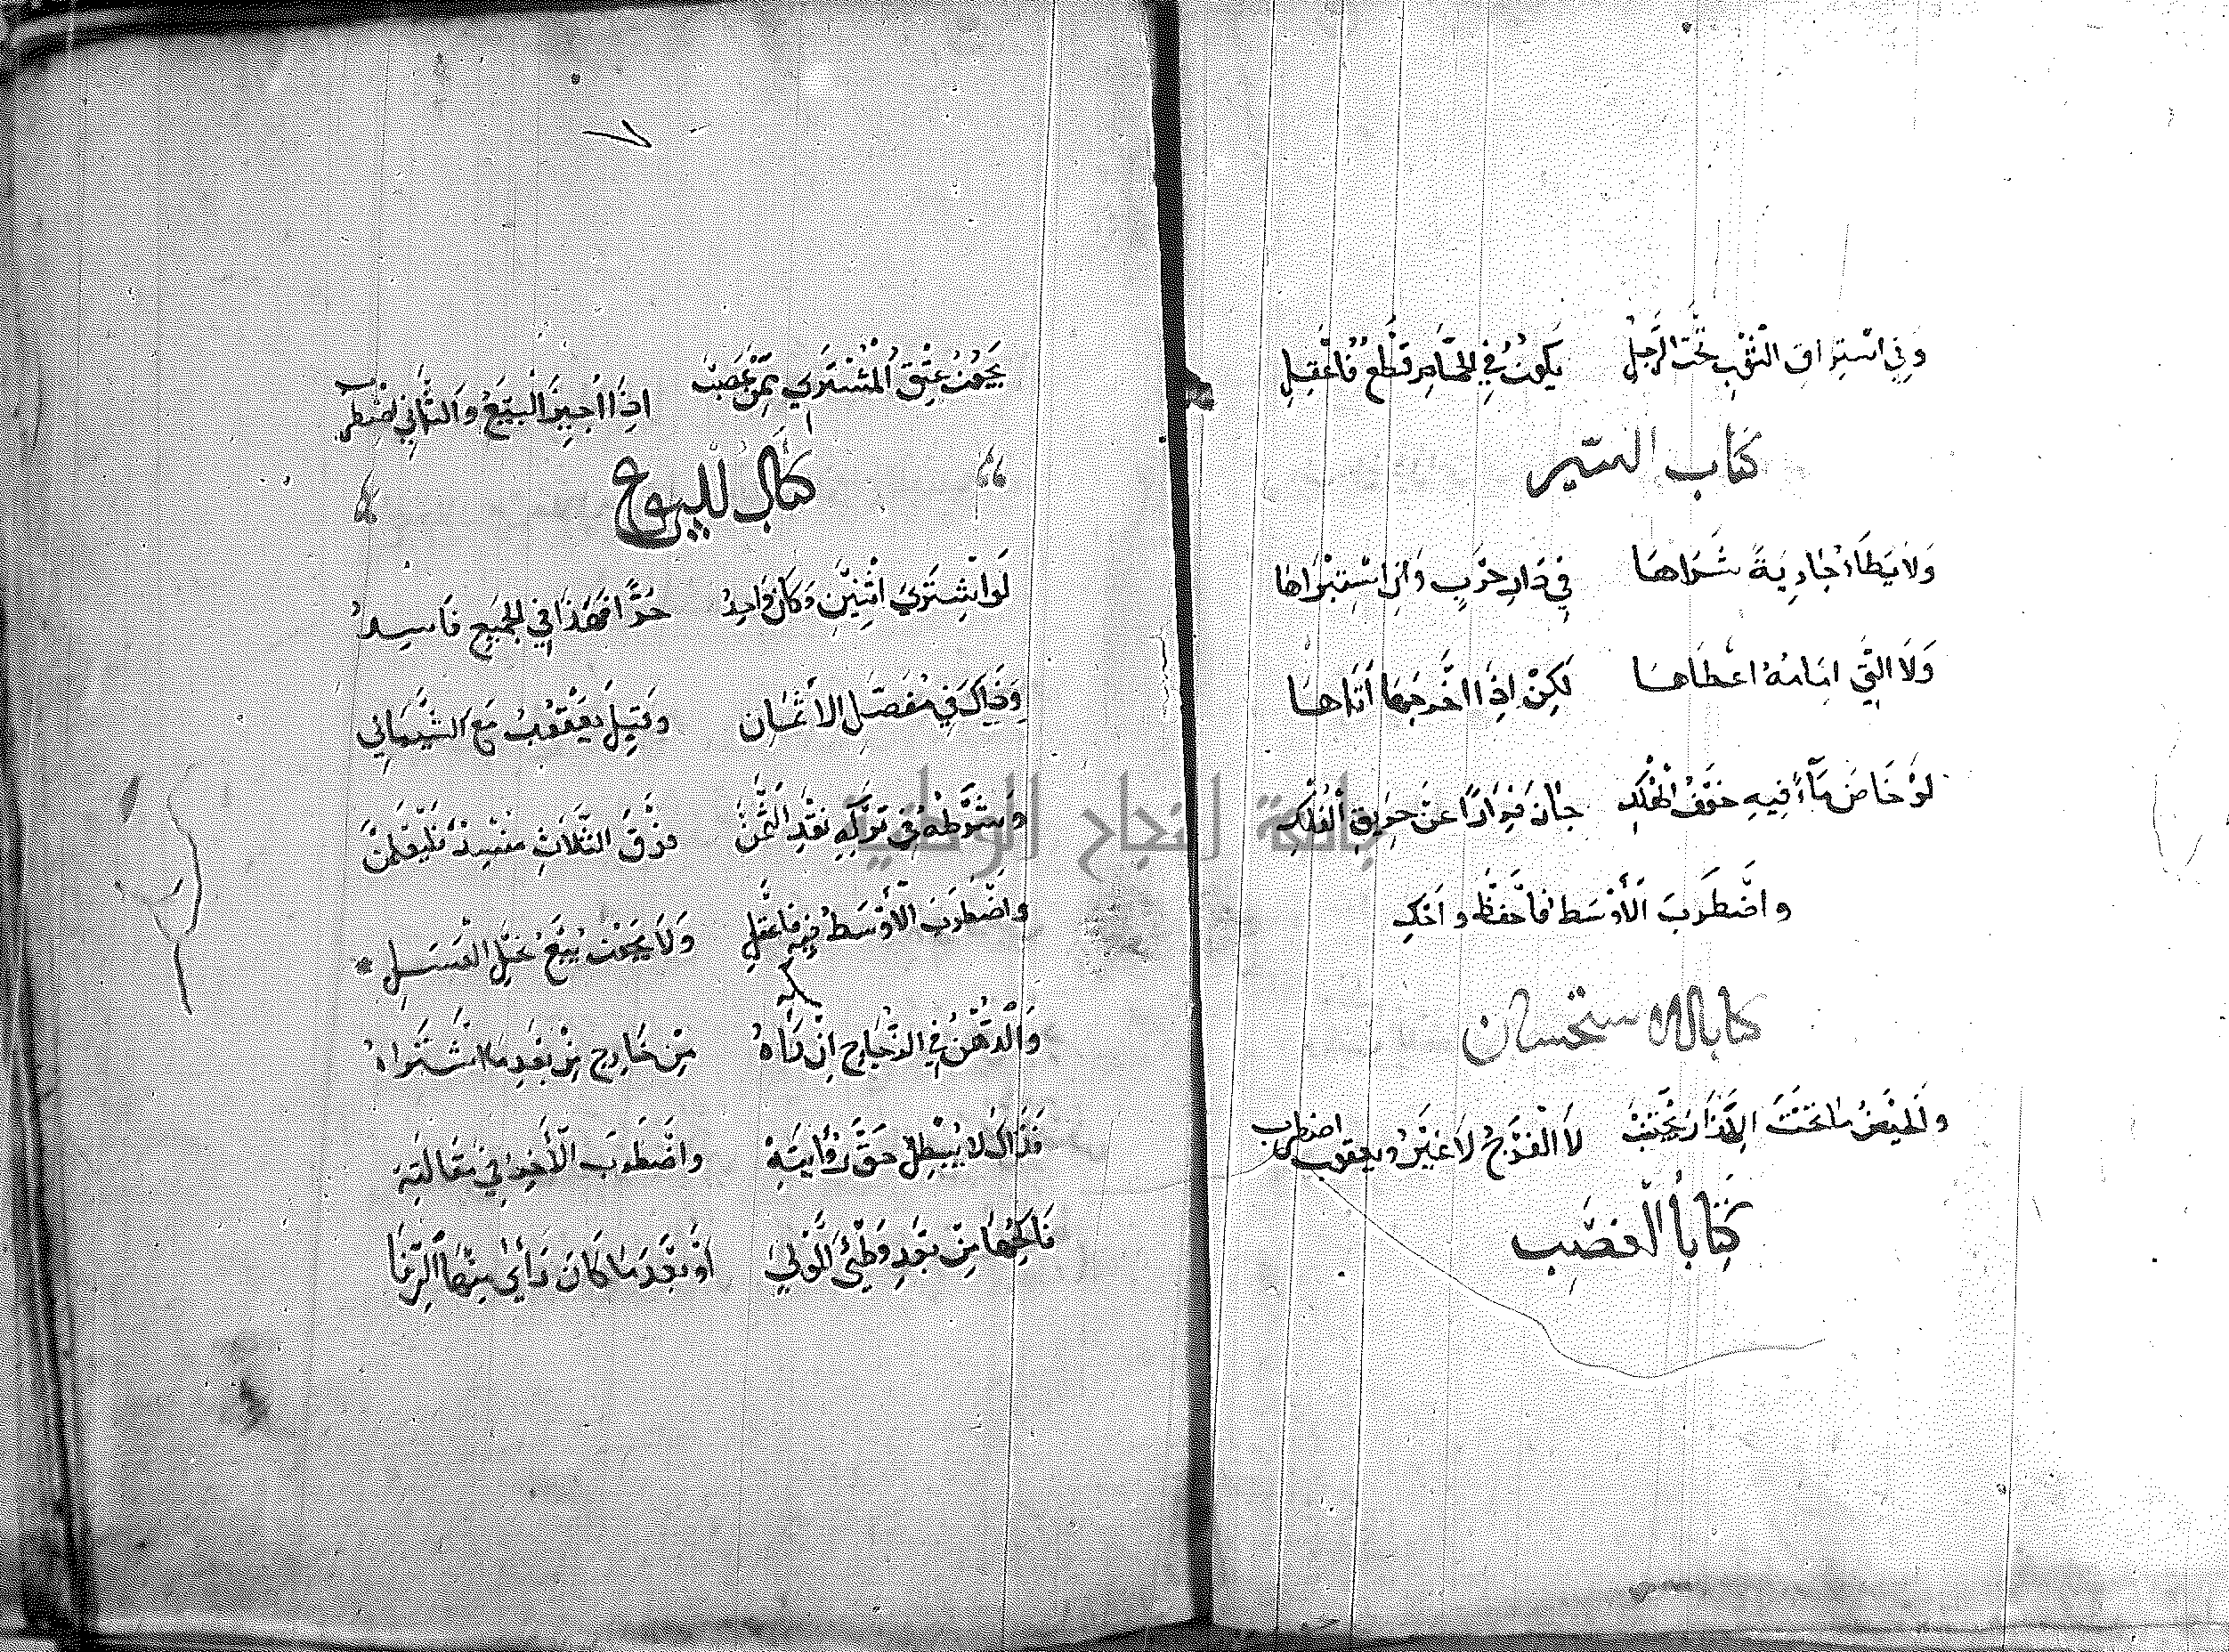 وَفِي اسْتِرَاقِ الثَّوْبِ تَحْتَ الرَّجُلِ يَكُونُ فِي الحَمَّامِ قَطْعٌ فَاعْقِلِ
كتاب السير
وَلَا يَطَأْ جَارِيَةً شَرَاهَا فِي دَارِ حَرْبٍ وَانِ اسْتِبْرَاهَا
وَلَا الَّتِي اِمَامُهُ اعْطَاهَا لَكِنْ اِذَا اخْرَجَهَا أَتَاهَا
لَوْ خَاضَ مَآءً فِيهِ خَوْفُ الْهُلْكِ جَازَ فِرَارًا عَنْ حَرِيقِ الْفُلْكِ
وَاضْطَرَبَ الأَوْسَطُ فَاحْفَظْ وَاحْكِ
كتاب الاستحسان
وَالحَيْضُ مَا تَحْتَ الإِزَارِ يُجْتَنَبْ لَا الْفَرْجُ لَا غَيْرُ وَيعقوب اضطرب
كِتَابُ الْغَصْبِ
يَجُوزُ عِتْقُ الْمُشْتَرِي مِمَّنْ غَصَبْ اِذَا أُجِيزَ الْبَيْعُ وَالثَّانِي اضْطَرب
كتاب البيوع
لَوِ اشْتَرَى اثْنَيْنِ وَكَانَ وَاحِدُ حُرًّا فَهَذَا فِي الجَمِيعِ فَاسِدُ
وَذَاكَ فِي مُفَصَّلِ الأَثْمَانِ وَقِيلَ يَعْقُوبُ مَعَ الشَّيْبَانِي
وَشَرْطُهُ فِي تَرْكِهِ نَقْدَ الثَّمَنْ فَوْقَ الثَّلَاثِ مُفْسِدٌ فَلْيُعْلَمَنْ
وَاضْطَرَبَ الأَوْسَطُ فِيهِ فَاعْقِلِ وَلَا يَجُوزُ بَيْعُ نَحْلِ الْعَسَلِ
وَالدُّهْنُ فِي الزُّجَاجِ اِنْ رَآهُ مِنْ خَارِجٍ مِنْ بَعْدِ مَا اشْتَرَاهُ
فَذَاكَ لَا يُبْطِلُ حَقَّ رُؤْيَتِهْ وَاضْطَرَبَ الأَخِيرُ فِي مَقَالَتِهْ
مِنْ بَعْدِ وَطْئِ الْمَوْلَى أَوْ بَعْدَ مَا كَانَ رَأَى مِنْهَا الزِّنَا
جامعة النجاح الوطنية